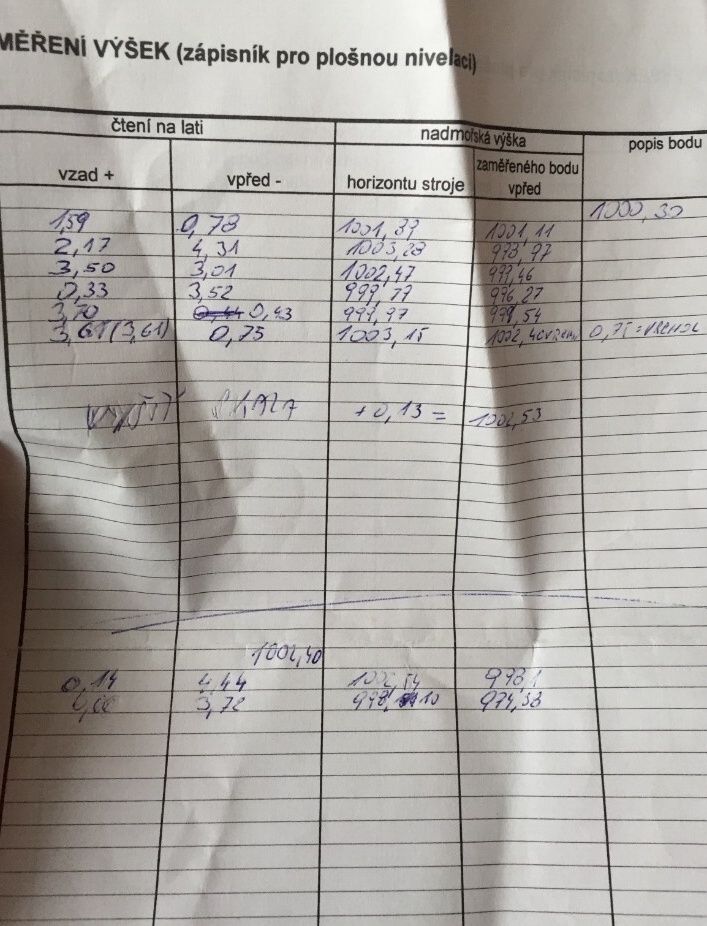 MĚŘENÍ VÝŠEK (zápisník pro plošnou nivelaci)
čtení na lati nadmořská výška popis bodu
vzad + vpřed - horizontu stroje zaměřeného bodu vpřed
1000,30
1,59 0,78 1001,89 1001,11
2,17 4,31 1003,28 998,97
3,50 3,01 1002,47 999,46
0,33 3,52 999,79 996,27
3,70 0,43 999,97 999,54
3,61 (3,61) 0,75 1003,15 1002,40 0,75 =
+ 0,13 = 1002,53
1002,40
0,14 4,44 1002,54 998,1
3,72 998,10 974,38